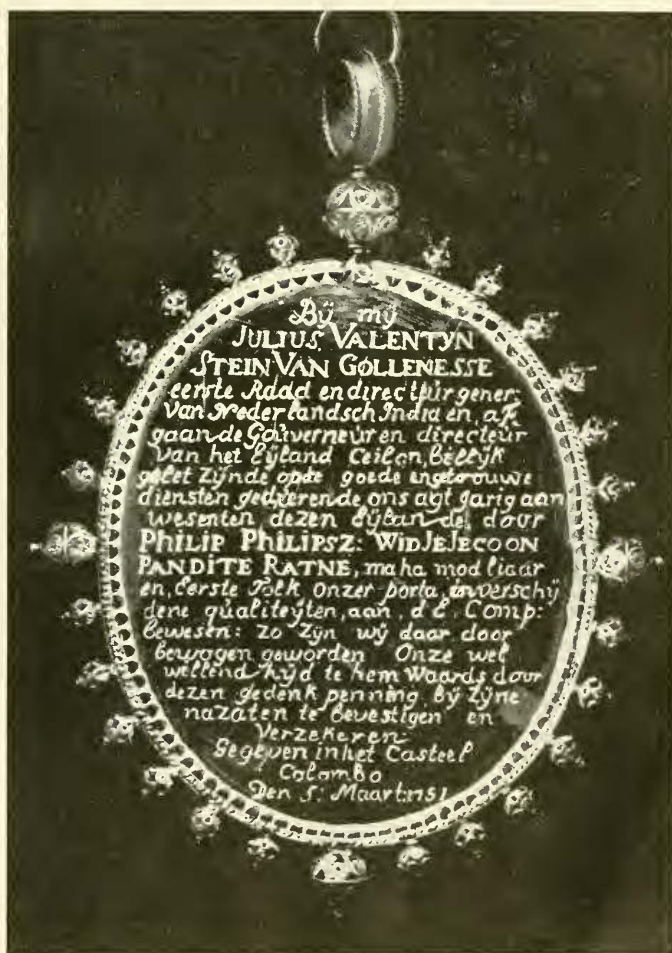 Bÿ mÿ
JULIUS VALENTYN
STEIN VAN GOLLENESSE
eerste Raad en directeùr gener:
van Nederlandsch India en, af
gaande Goùverneùr en directeùr
van het Eÿland Ceilon, billÿk
gelet Zÿnde op de goede en getrouwe
diensten gedùrende ons agt jarig aan
wesen ten dezen Eÿlande, door
PHILIP PHILIPSZ: WIDJEJECOON
PANDITE RATNE, maha modliaar
en, Eerste Tolk, onzer porta, in verschÿ
dene qùaliteÿten, aan, d E, Comp:
bewesen: zo zÿn wÿ daar door
bewogen geworden Onze wel
willend hÿd te hem Waards door
dezen gedenk penning bÿ Zÿne
nazaten te bevestigen en
Verzekeren
Gegeven in het Casteel
Colombo
Den 5: Maart: 1751